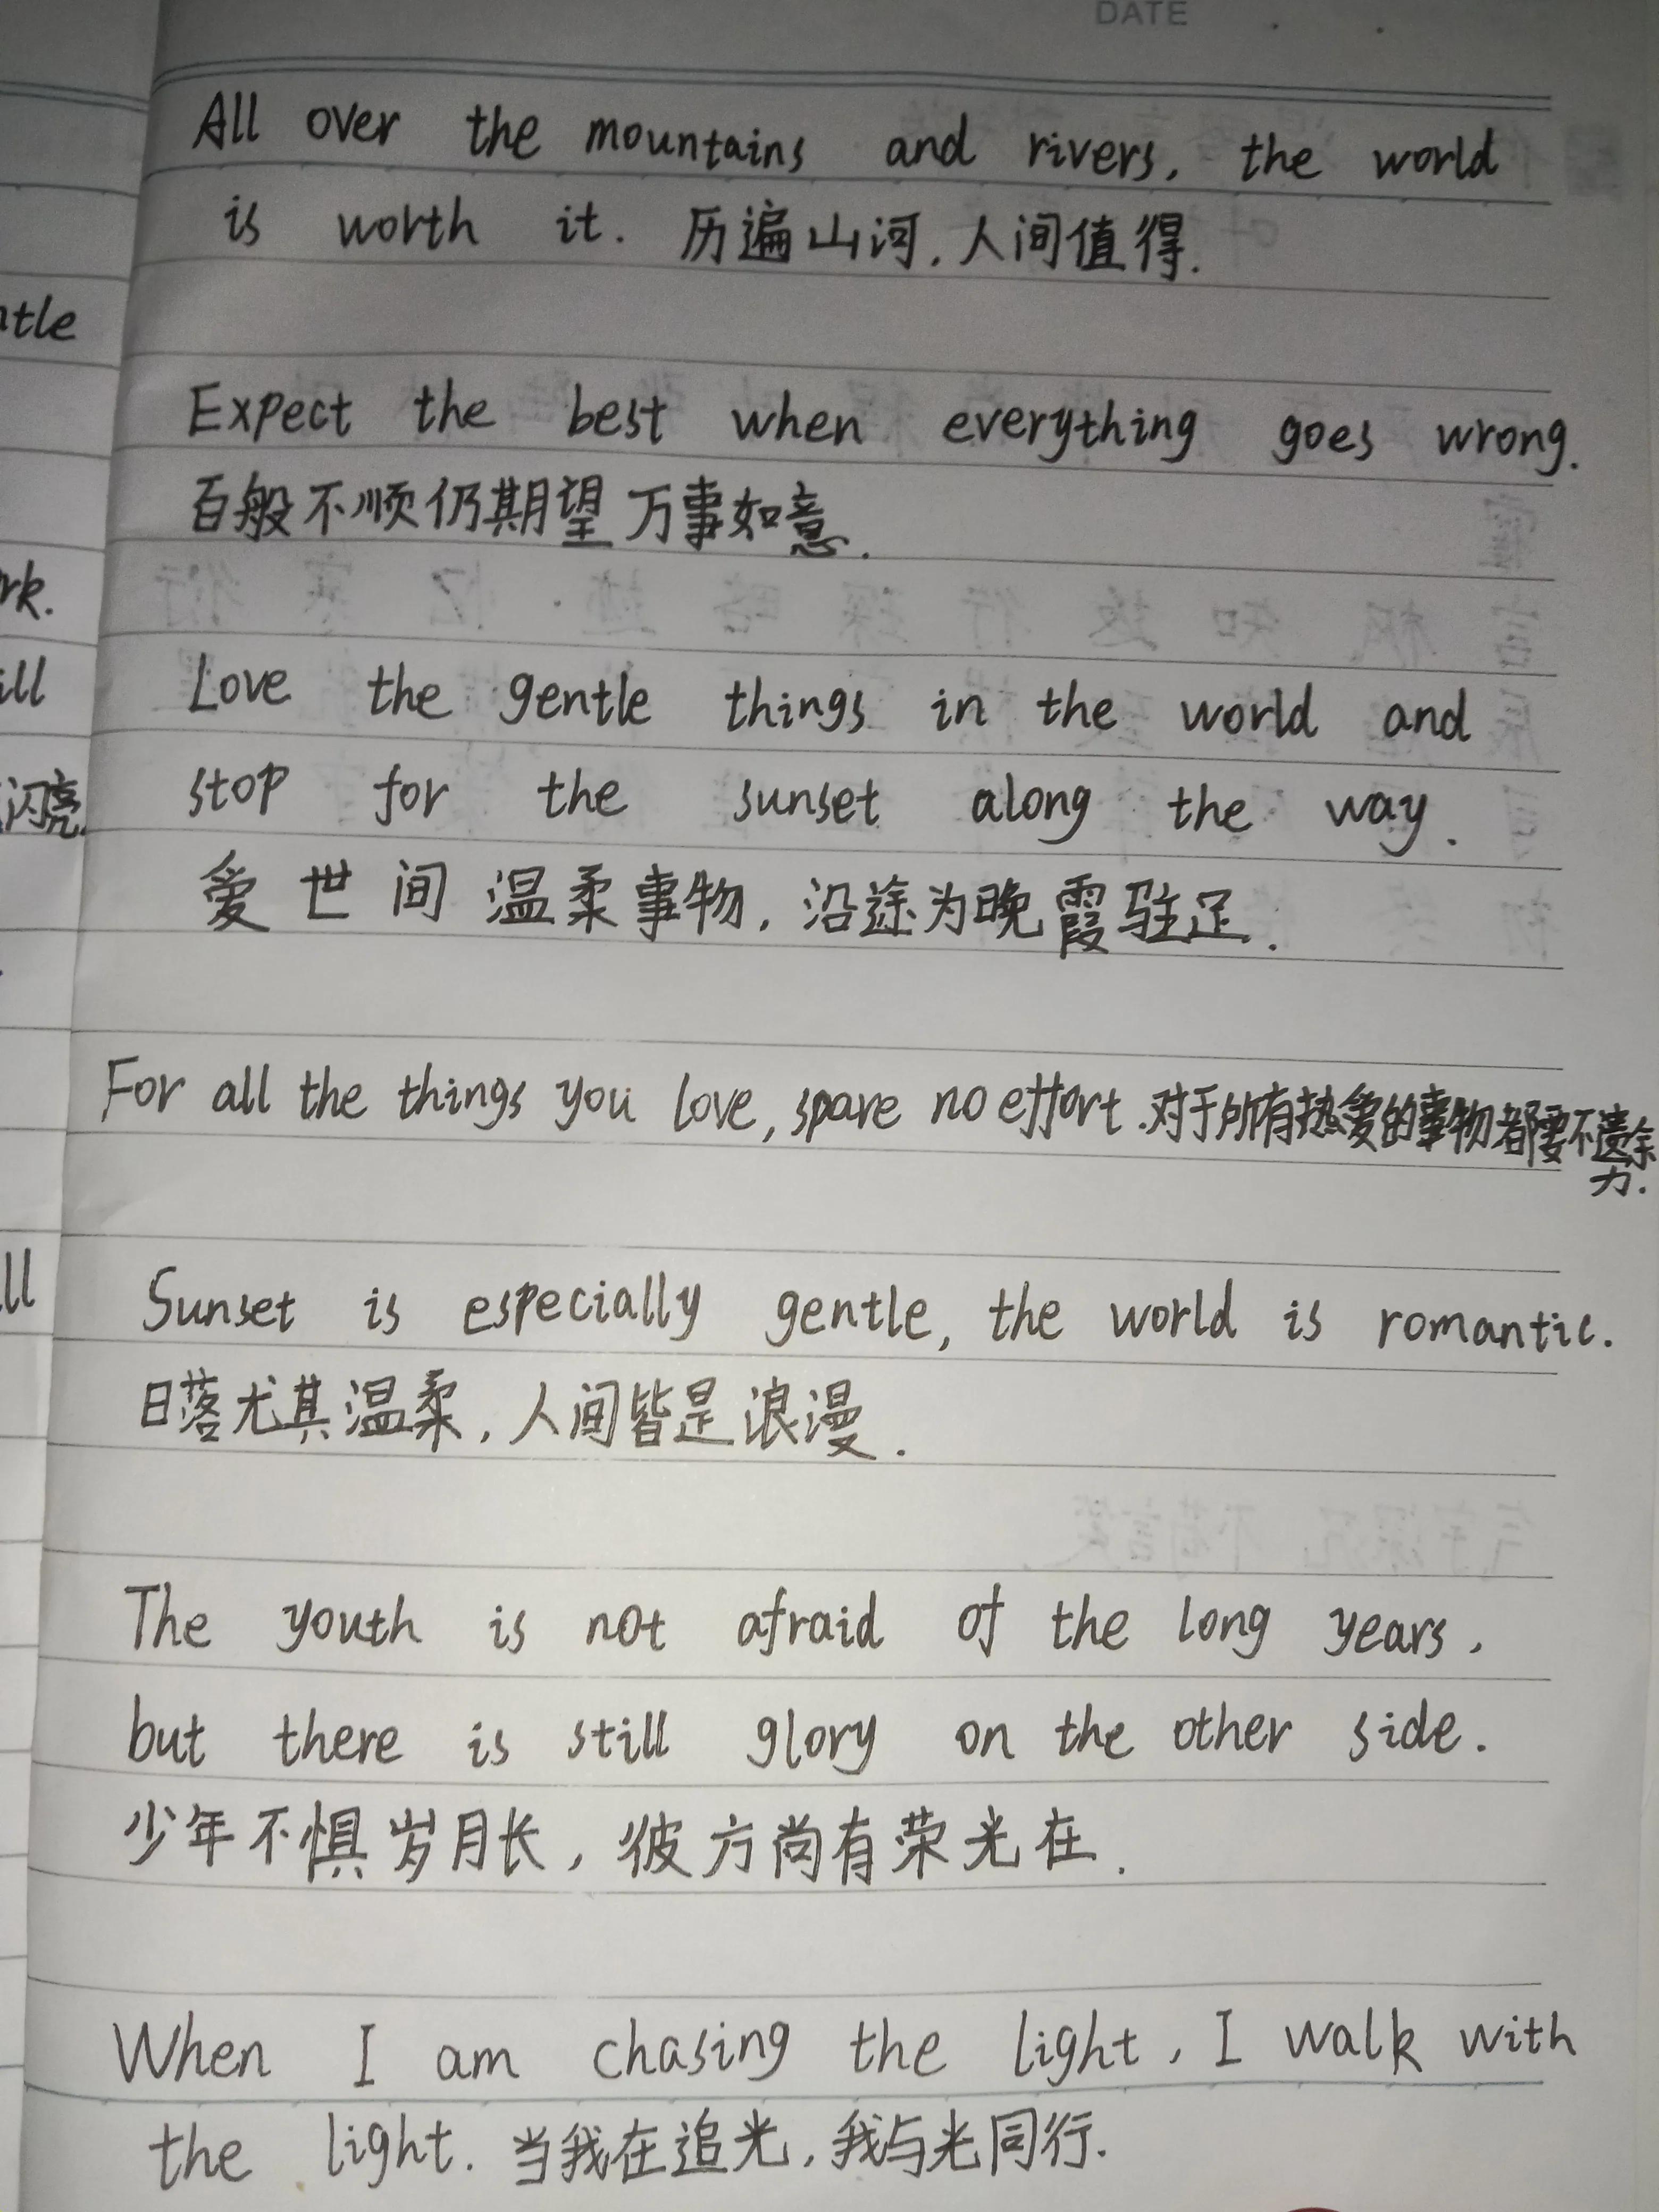 DATE
All over the mountains and rivers, the world
is worth it. 历遍山河,人间值得.
Expect the best when everything goes wrong.
百般不顺仍期望万事如意.
Love the gentle things in the world and
stop for the sunset along the way.
爱世间温柔事物,沿途为晚霞驻足.
For all the things you love, spare no effort.对于所有热爱的事物都要不遗余
力.
Sunset is especially gentle, the world is romantic.
日落尤其温柔,人间皆是浪漫.
The youth is not afraid of the long years,
but there is still glory on the other side.
少年不惧岁月长,彼方尚有荣光在.
When I am chasing the light, I walk with
the light. 当我在追光,我与光同行.
闪亮.